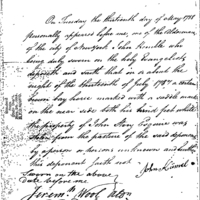 On Tuesday the thirteenth day of May 1788
personally appeared before me, one of the Aldermen
of the city of New York John Kemble who
being duly sworn on the holy Evangelists
deposeth and saith that in or about the
night of the thirteenth of July 1787 a stolen
brown bay horse marked with a
on the near side with his hind feet white
the property of John Esquire was
stolen from the pasture of the said deponent
by a person or persons unknown and further
this deponent saith not
Sworn on the above
date before me
Jeremh Wool Alderm